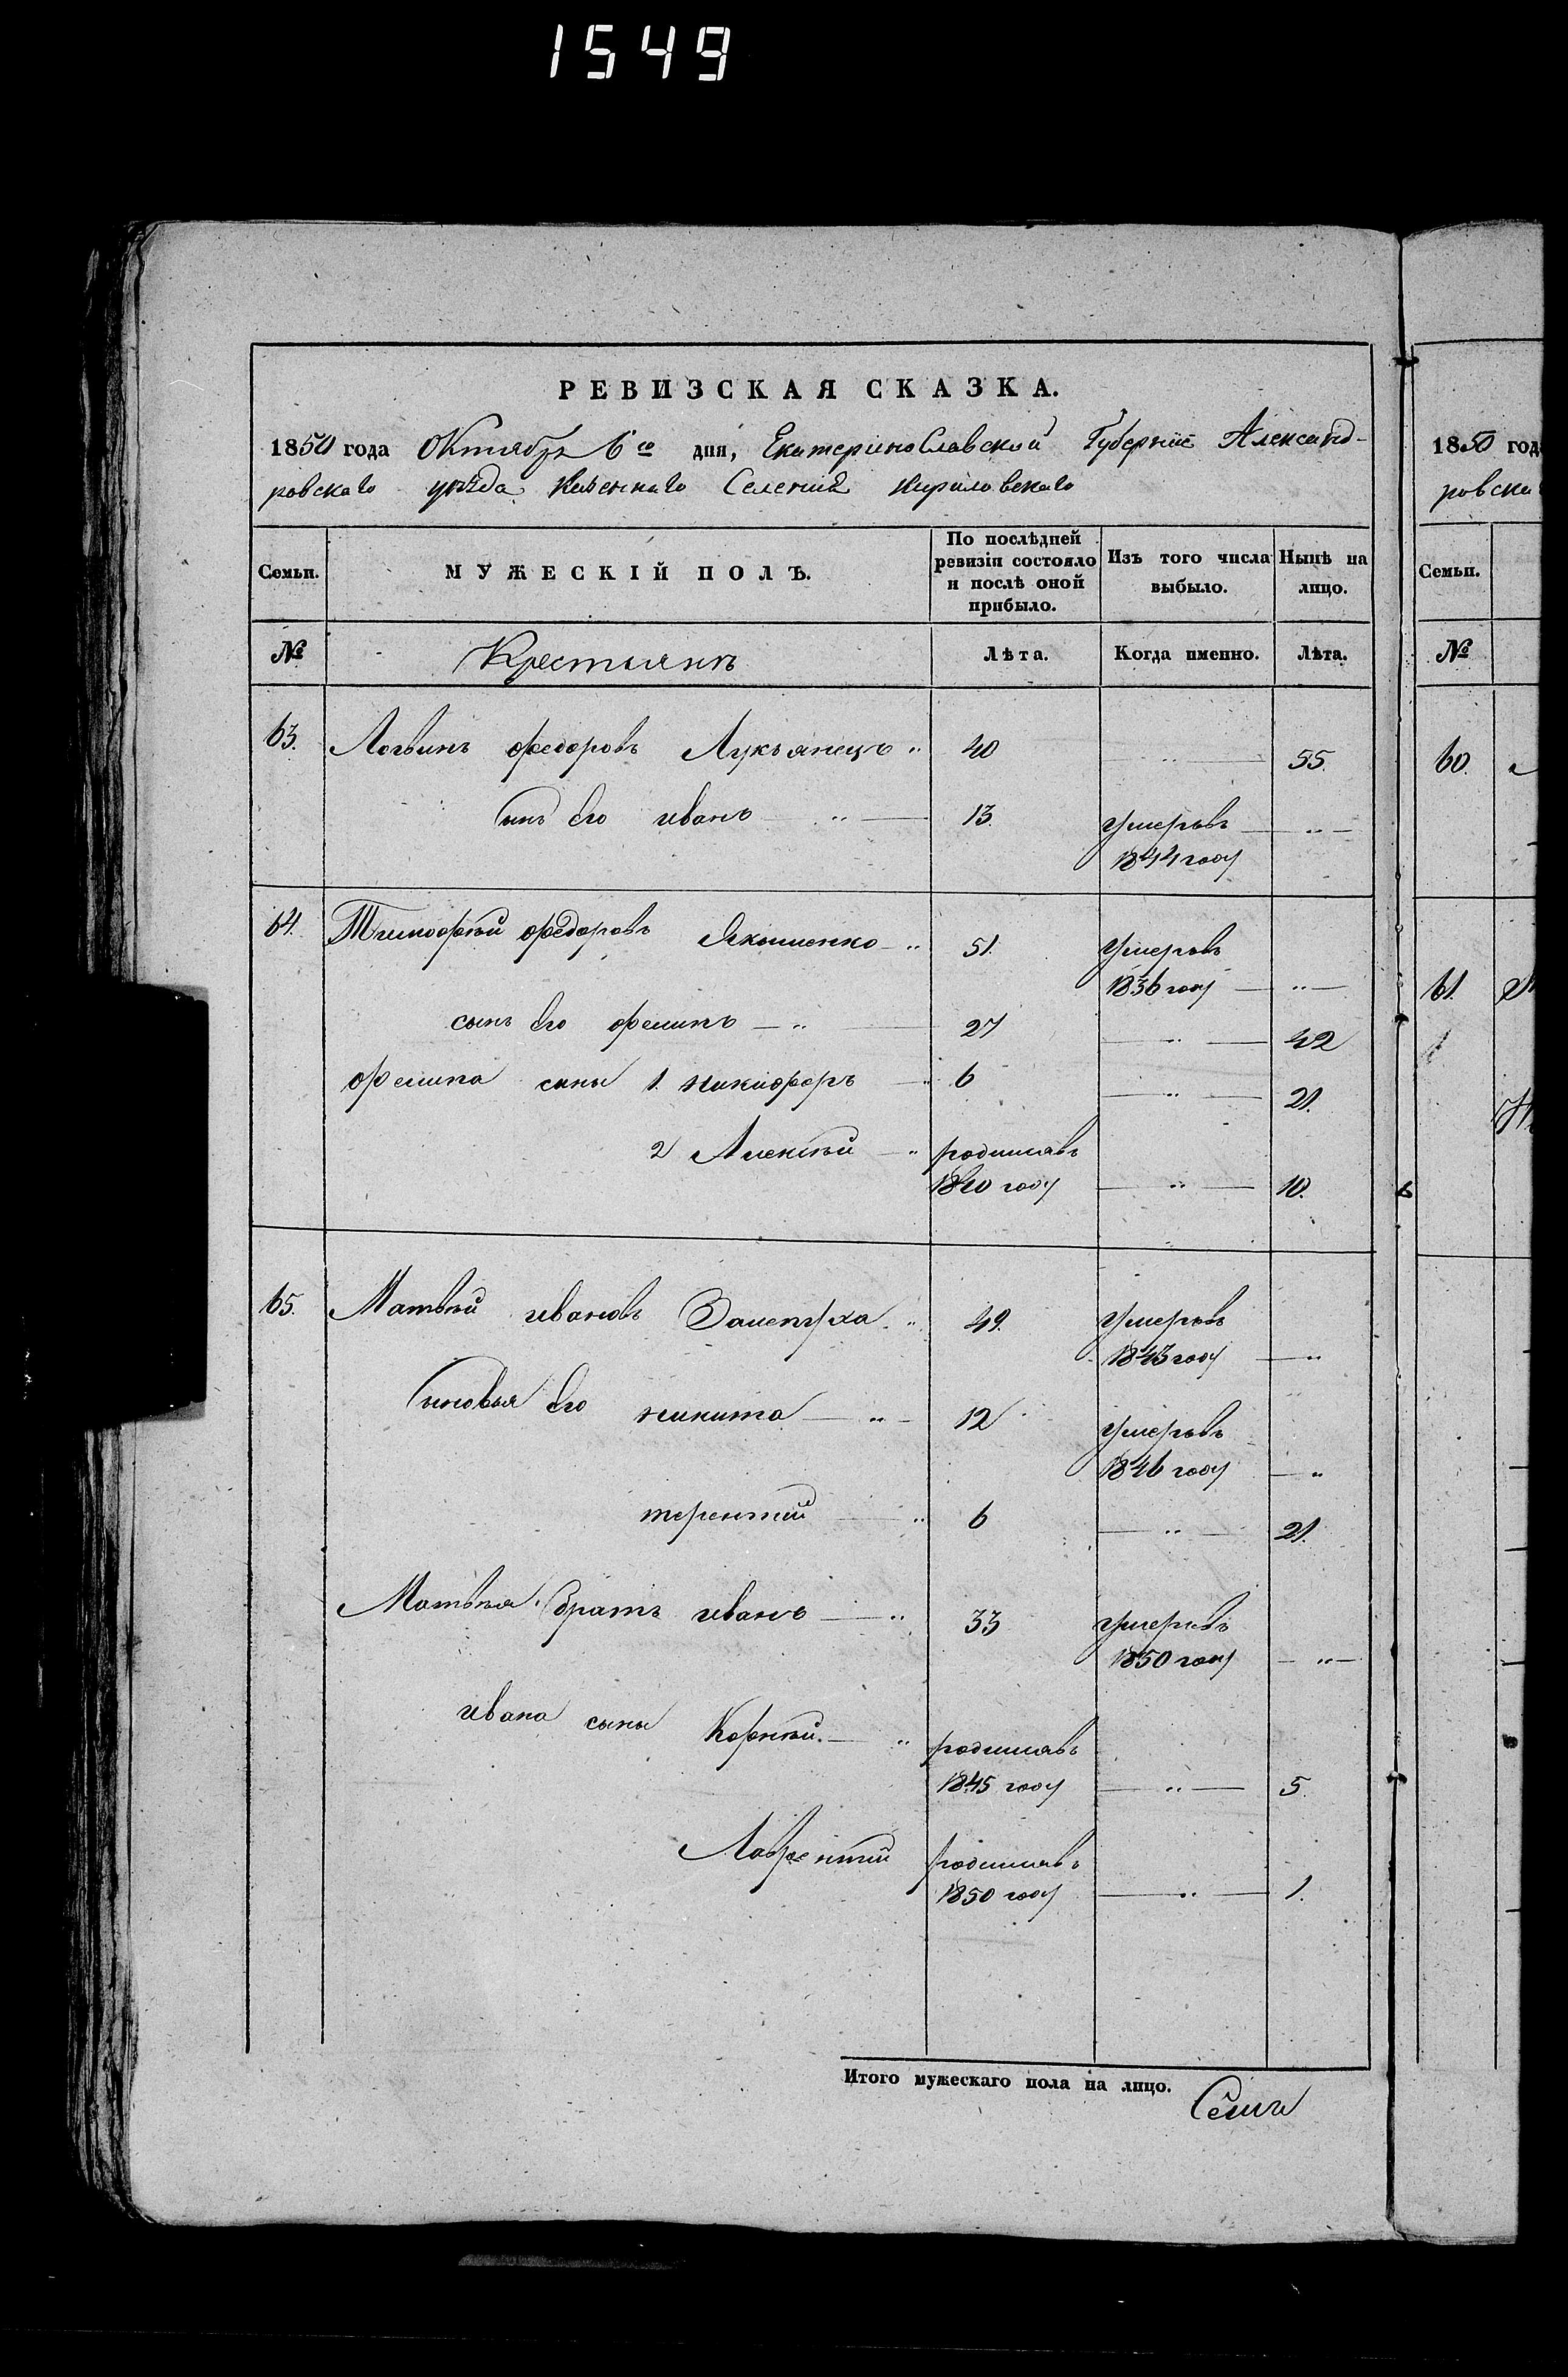 1549
РЕВИЗСКАЯ СКАЗКА.
1850 года Октября 6го дня, Екатеринославской Губернiи Александ-
ровскаго уѣзда Казеннаго Селенiя Кириловскаго
Семьи. МУЖЕСКІЙ ПОЛЪ. По послѣдней ревизіи состояло и послѣ оной прибыло. Изъ того числа выбыло. Нынѣ на лицо.
№ Крестьянъ Лѣта. Когда именно. Лѣта.
63. Логвинъ федоровъ Лукьянецъ " 40 — " — 55.
Сынъ Его иванъ — " — 13. умеръ въ — " —
1844 году
64. Тимофѣй федоровъ Якименко — " 51. умеръ въ
1836 году — " —
сынъ Его филипъ — " — 27 — " — 42
филипа сыны 1. никифоръ — " 6 — " — 21.
2 Алексѣй — " родился въ
1840 году — " — 10.
65. Матвѣй ивановъ " 49. умеръ въ
1843 году — "
Сыновья Его никита — " — 12 умеръ въ
1846 году — "
терентий — " 6 — " — 21.
Матвѣя братъ иванъ — " 33 умеръ въ
1850 году — " —
ивана сыны Корнѣй. — " родился въ
1845 году — " — 5.
Лаврентий родился въ
1850 году — " — 1.
Итого мужескаго пола на лицо. Семь
1850 год
ровска
Семьи.
№
60.
61.